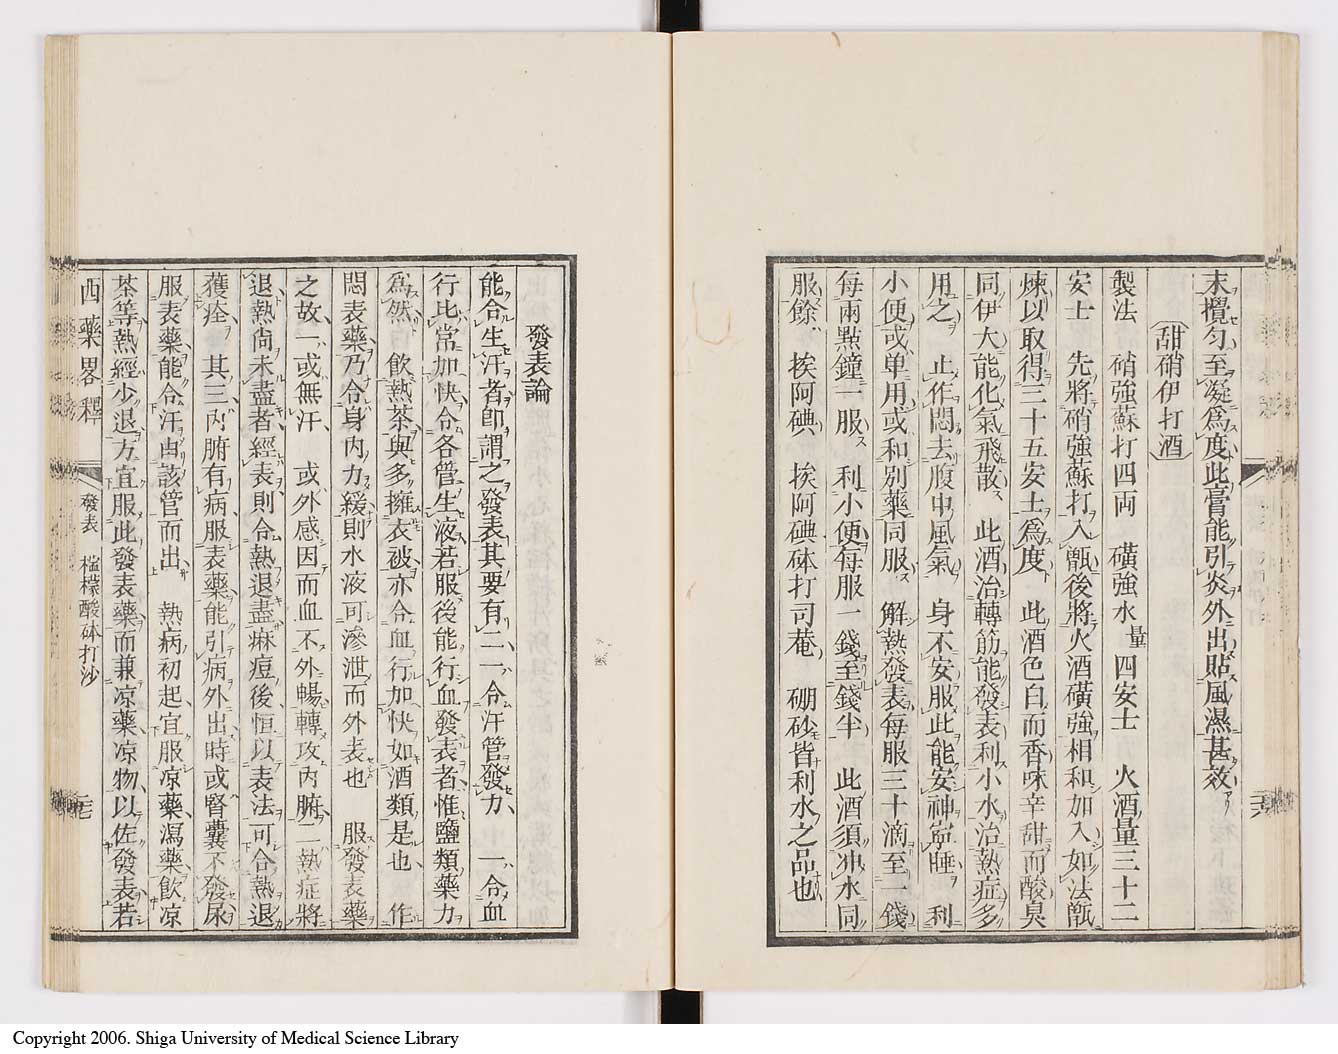 末攪匀至凝爲度此膏能引炎外出貼風濕甚效
甜硝伊打酒
製法 硝強蘇打四両 磺強水量四安士 火酒量三十二
安士 先將硝強蘇打入甑後將火酒磺強相和加入如法甑
煉以取得三十五安士爲度 此酒色白而香味辛甜而酸臭
同伊大能化氣飛散 此酒治轉筋能發表利小水治熱症多
用之 止作悶去腹中風氣 身不安服此能安神寧睡 利
小便或单用或和別藥同服 解熱發表每服三十滴至一錢
每兩點鐘一服 利小便每服一錢至錢半 此酒須冲水同
服餘 挨阿碘 挨阿碘砵打司菴 硼砂皆利水之品也
發表論
能令生汗者卽謂之發表其要有二一令汗管發力 一令血
行比常加快令各管生液若服後能行血發表者惟鹽類藥力
爲然 飲熱茶與多擁衣被亦令血行加快如酒類是也 作
悶表藥乃令身內力緩則水液可滲泄而外表也 服發表藥
之故一或無汗 或外感因而血不外暢轉攻內腑二熱症將
退熱尚未盡者經表則令熱退盡痳痘後恒以表法可令熱退
獲痊 其三內腑有病服表藥能引病外出時或腎囊不發尿
服表藥能令汗由該管而出 熱病初起宜服凉藥瀉藥飲凉
茶等熱經少退方宜服此發表藥而兼凉藥凉物以佐發表若
西藥畧釋
發表 檻檬酸砵打沙